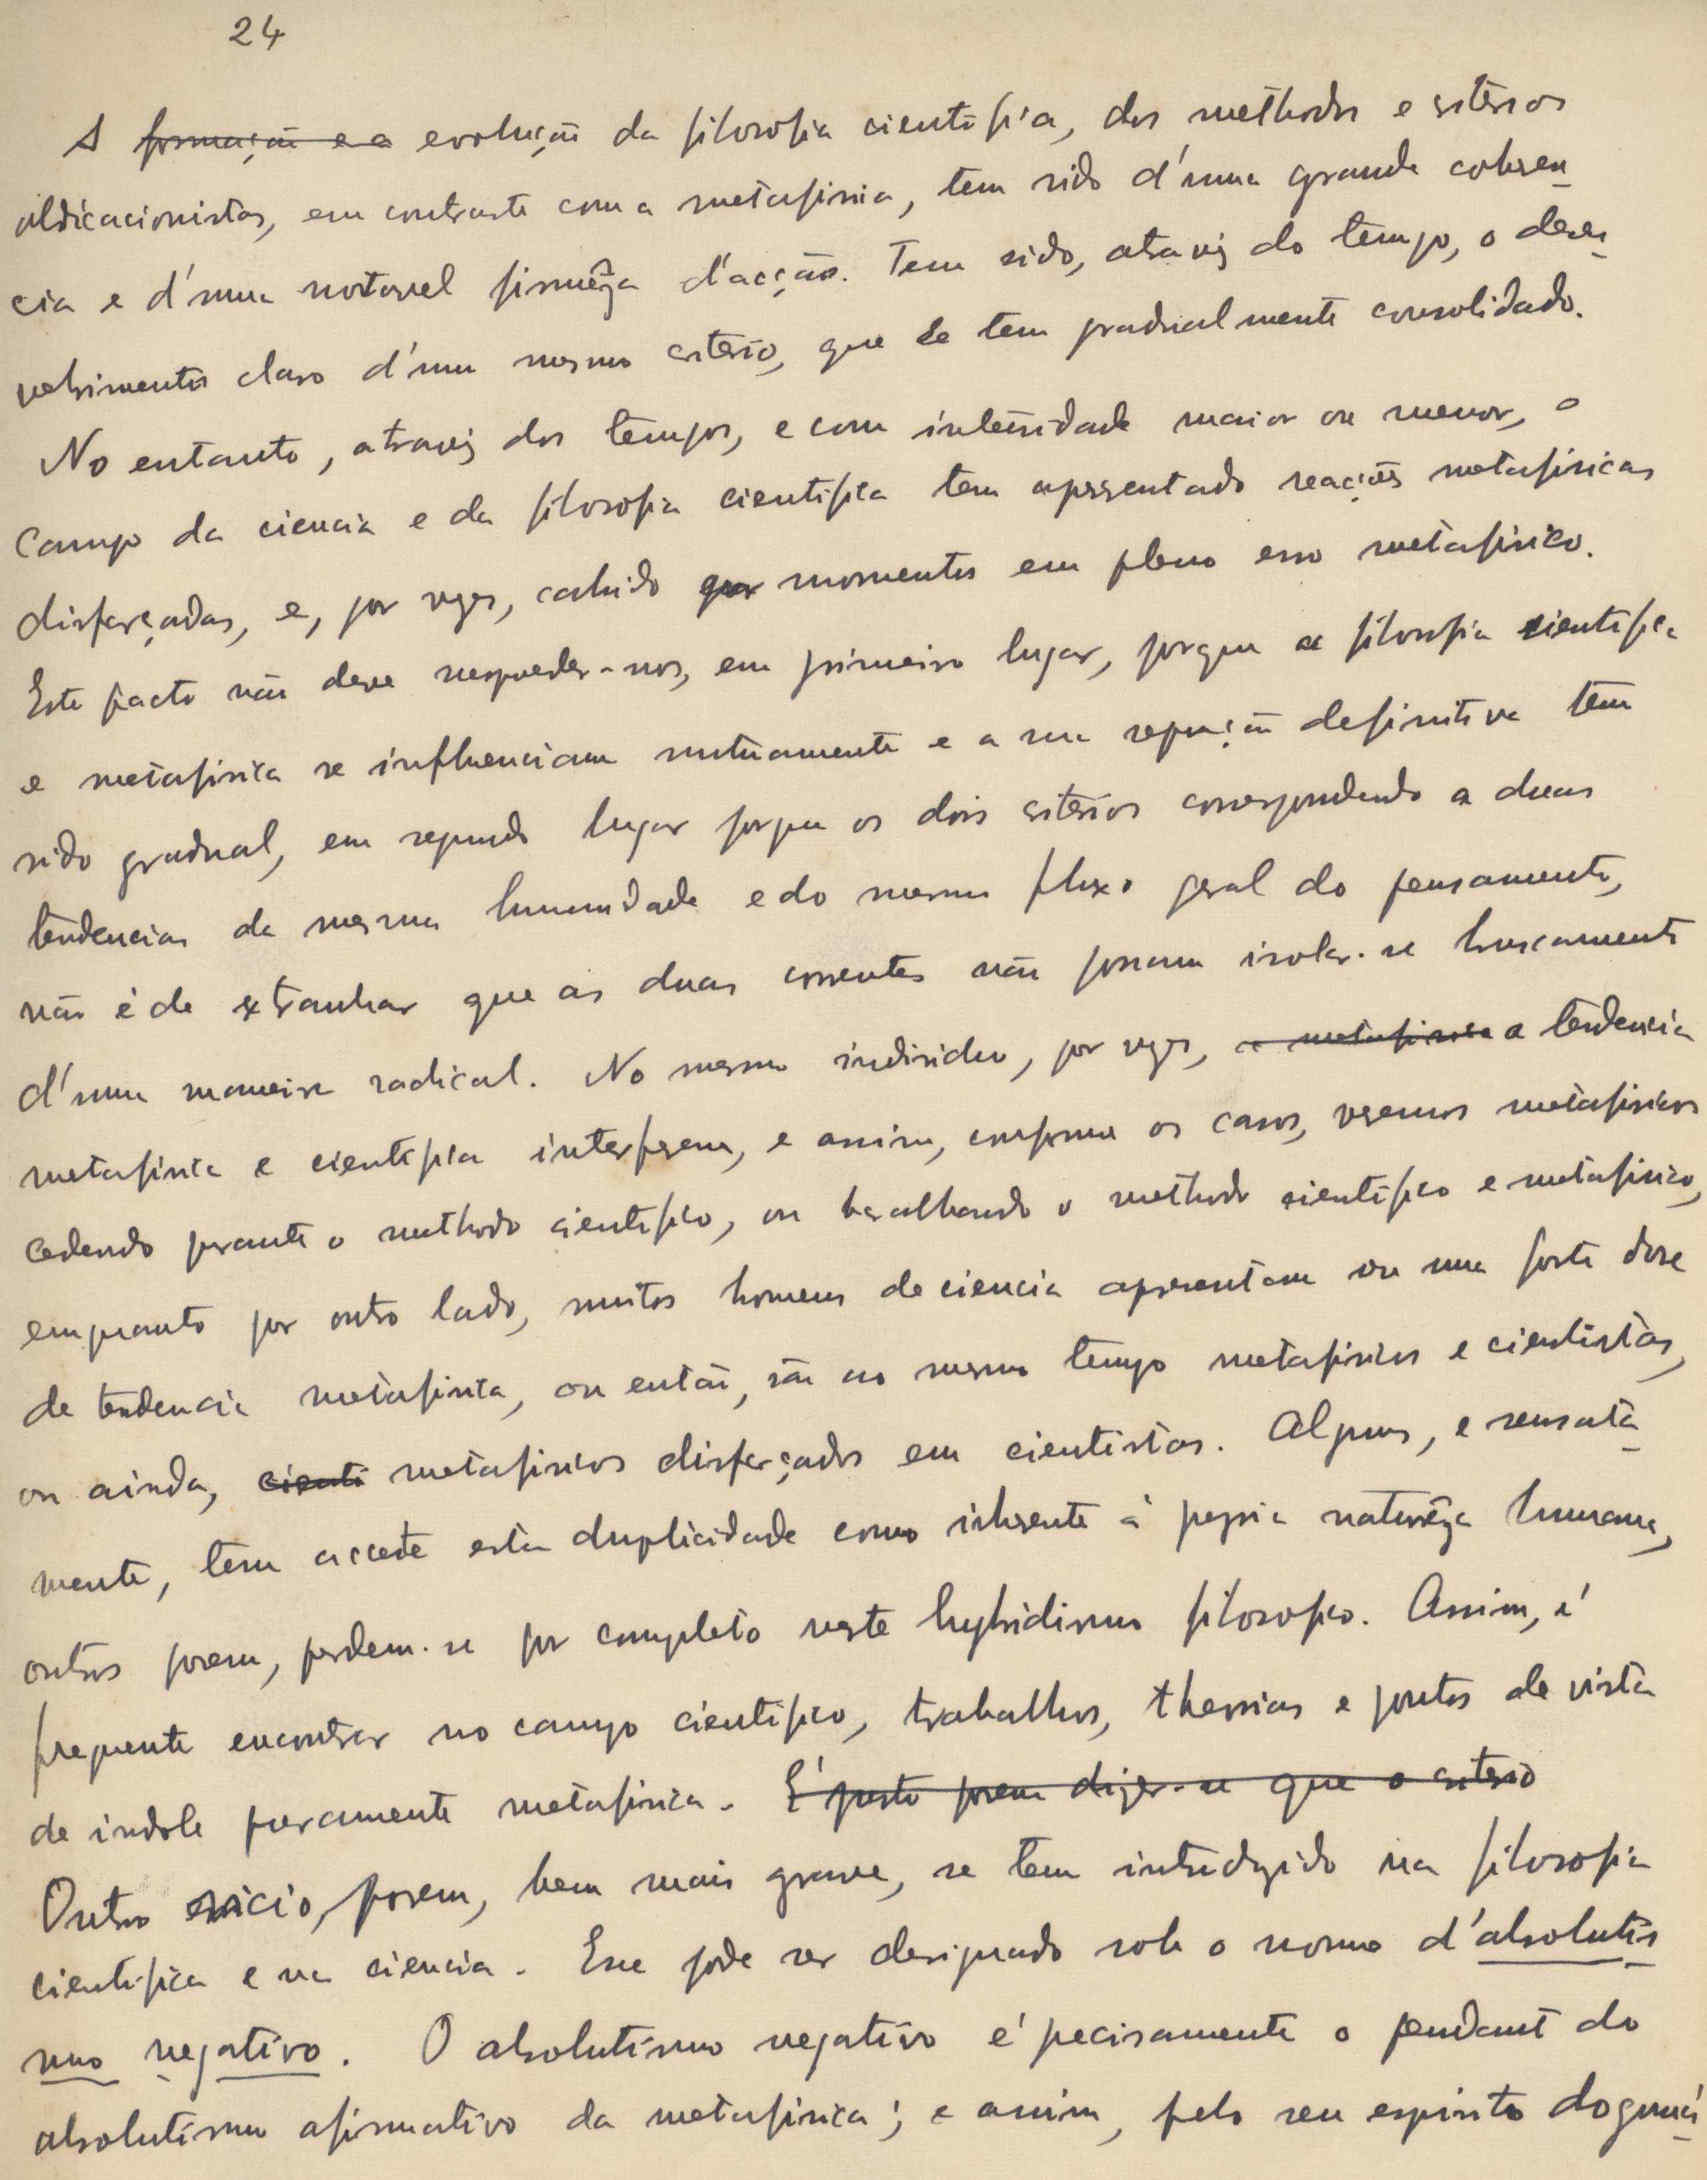 24
A formação e a evolução da filosofia cientifica, dos methodos e criterios
abdicacionistas, em contraste com a metafisica, tem sido d'uma grande coheren-
cia e d'uma notavel firmêza d'acção. Tem sido, atravez do tempo, o desen-
volvimento claro d'um mesmo criterio, que se tem gradualmente consolidado.
No entanto, atravez dos tempos, e com intensidade maior ou menor, o
campo da ciencia e da filosofia cientifica tem apresentado reacções metafisicas
disfarçadas, e, por vezes, cahido por momentos em pleno erro metafisico.
Este facto não deve surpreender-nos, em primeiro lugar, porque a filosofia cientifica
e metafisica se influenciam mutuamente e a sua separação definitiva tem
sido gradual, em segundo lugar porque os dois criterios correspondendo a duas
tendencias da mesma humanidade e do mesmo fluxo geral do pensamento,
não é de extranhar que as duas correntes não possam isolar-se bruscamente
d'uma maneira radical. No mesmo individuo, por vezes, a metafisica a tendencia
metafisica e cientifica interferem, e assim, conforme os casos, vemos metafisicos
cedendo perante o methodo cientifico, ou baralhando o methodo cientifico e metafisico,
emquanto por outro lado, muitos homens de ciencia apresentam ou uma forte dose
de tendencia metafisica, ou então, são ao mesmo tempo metafisicos e cientistas,
ou ainda, cienti metafisicos disfarçados em cientistas. Alguns, e sensata-
mente, tem acceite esta duplicidade como inherente á propria naturêza humana,
outros porem, perdem-se por completo neste hybridismo filosofico. Assim, é
frequente encontrar no campo cientifico, trabalhos, theorias e pontos de vista
de indole puramente metafisica. É justo porem dizer-se que o criterio
Outro vicio, porem, bem mais grave, se tem introduzido na filosofia
cientifica e na ciencia. Esse pode ser designado sob o nome d'absolutis-
mo negativo. O absolutismo negativo é precisamente o pendant do
absolutismo afirmativo da metafisica; e assim, pelo seu espirito dogmá-